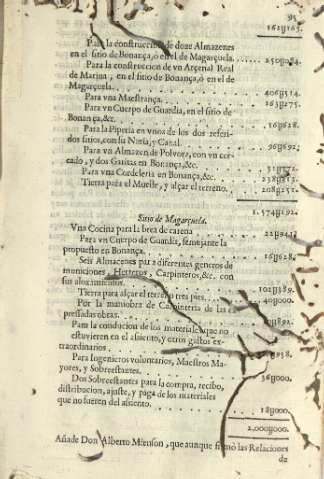 162U165.
Para la construccion de doze Almazenes
en el sitio de Bonança, ò en el de Magarçuela. 250U084.
Para la construccion de vn Arçenal Real
de Marina, en el sitio de Bonança, ò en el de
Magarçuela. 406U514.
Para vna Maestrança. 163U275.
Para vn Cuerpo de Guardia, en el sitio de
Bonança, &c. 16U928.
Para la Piperia en vnos de los dos referi-
dos sitios, con su Noria, y Canal. 96U692.
Para vn Almazen de Polvora, con vn cer-
cado, y dos Garitas en Bonança, &c.
Para vna Cordeleria en Bonança, &c.
Tierra para el Muelle, y alçar el terreno. 208U251.
1.574U192.
Sitio de Magarçuela.
Vna Cocina para la brea de carena
Para vn Cuerpo de Guardia, semejante la
propuesto en Bonança. 16U928.
Seis Almacenes para diferentes generos de
municiones, Herreros, Carpinteros, &c. con
sus aloxamientos.
Tierra para alçar el terreno tres pies. 40U000.
Por la maniobra de Carpinteria de las ex-
pressadas obras.
Para la conducion de los materiales que no
estuvieren en el assiento, y otros gastos ex-
traordinarios
Para Ingenieros voluntarios, Maestros Ma-
yores, y Sobrestantes. 36U000.
Dos Sobrestantes para la compra, recibo,
distribucion, ajuste, y paga de los materiales
que no fueren del assiento. 18U000.
2,000U000.
Añade Don Alberto Mienson, que aunque firmò las Relaciones
de